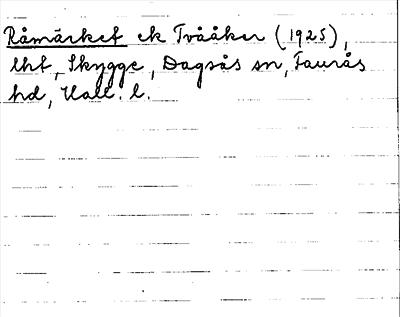 Råmärket ek Tvååker (1925),
lht, Skygge, Dagsås sn, Faurås
hd, Hall. l.